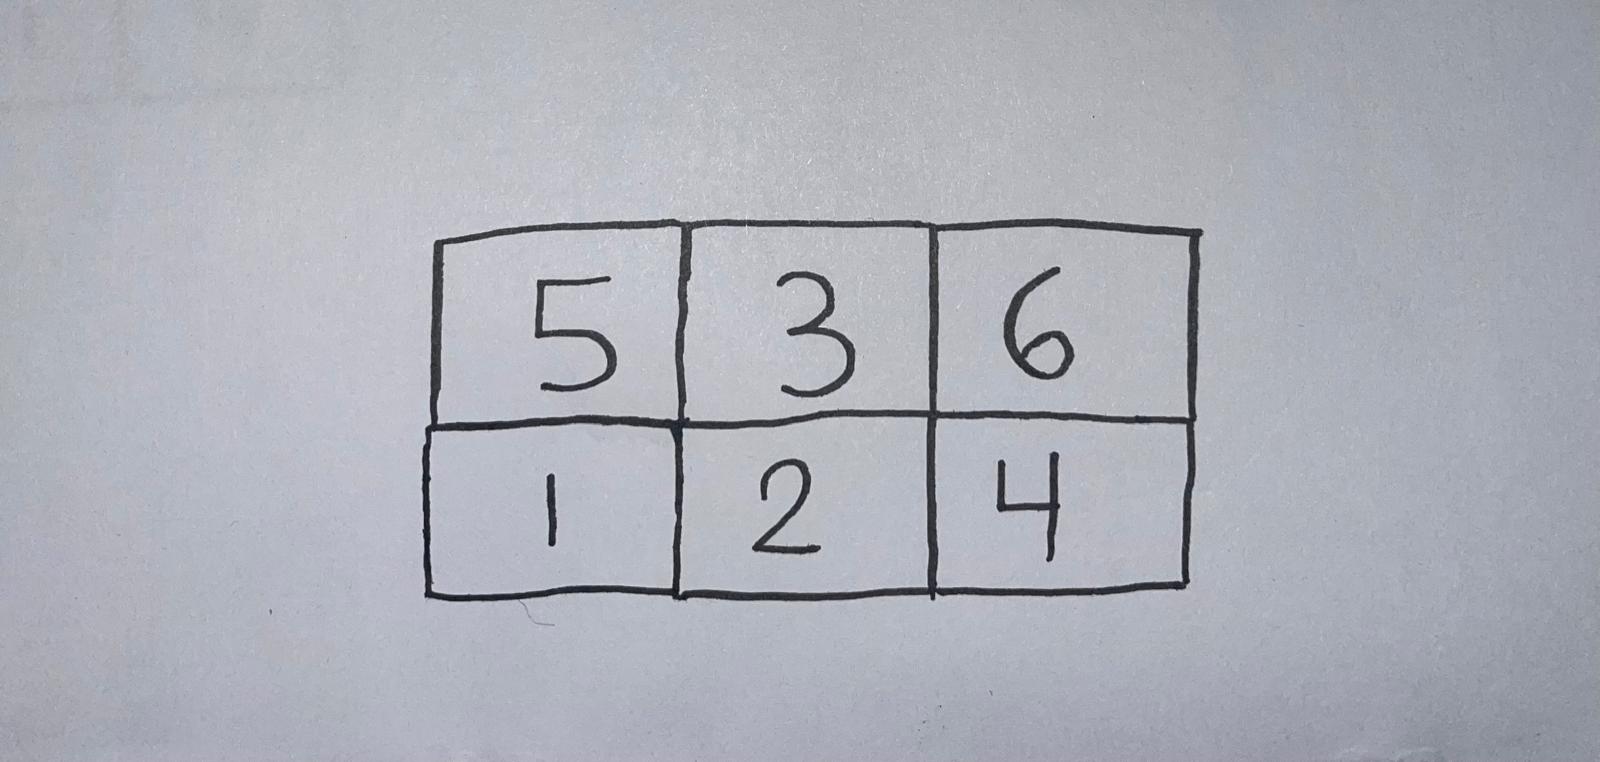 5 3 6
1 2 4